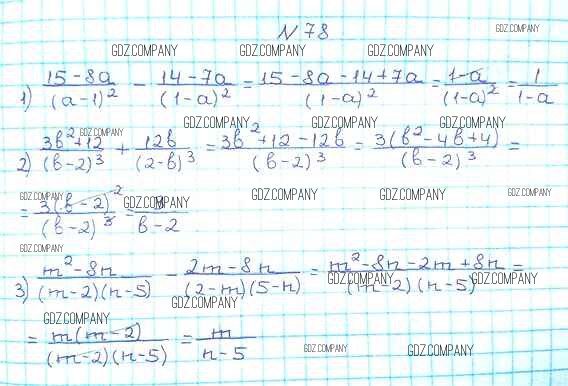 N 78
GDZ.COMPANY
GDZ.COMPANY GDZ.COMPANY GDZ.COMPANY
1) (15-8a)/(a-1)² - (14-7a)/(1-a)² = (15-8a-14+7a)/(1-a)² = (1-a)/(1-a)² = 1/(1-a)
GDZ.COMPANY GDZ.COMPANY GDZ.COMPANY GDZ.COMPANY
2) (3b²+12)/(b-2)³ + 12b/(2-b)³ = (3b²+12-12b)/(b-2)³ = 3(b²-4b+4)/(b-2)³ =
GDZ.COMPANY GDZ.COMPANY GDZ.COMPANY GDZ.COMPANY GDZ.COMPANY
= 3(b-2)²/(b-2)³ = 3/(b-2)
GDZ.COMPANY
3) (m²-8n)/((m-2)(n-5)) - (2m-8n)/((2-m)(5-n)) = (m²-8n-2m+8n)/((m-2)(n-5)) =
GDZ.COMPANY GDZ.COMPANY GDZ.COMPANY
GDZ.COMPANY
= m(m-2)/((m-2)(n-5)) = m/(n-5)
GDZ.COMPANY GDZ.COMPANY